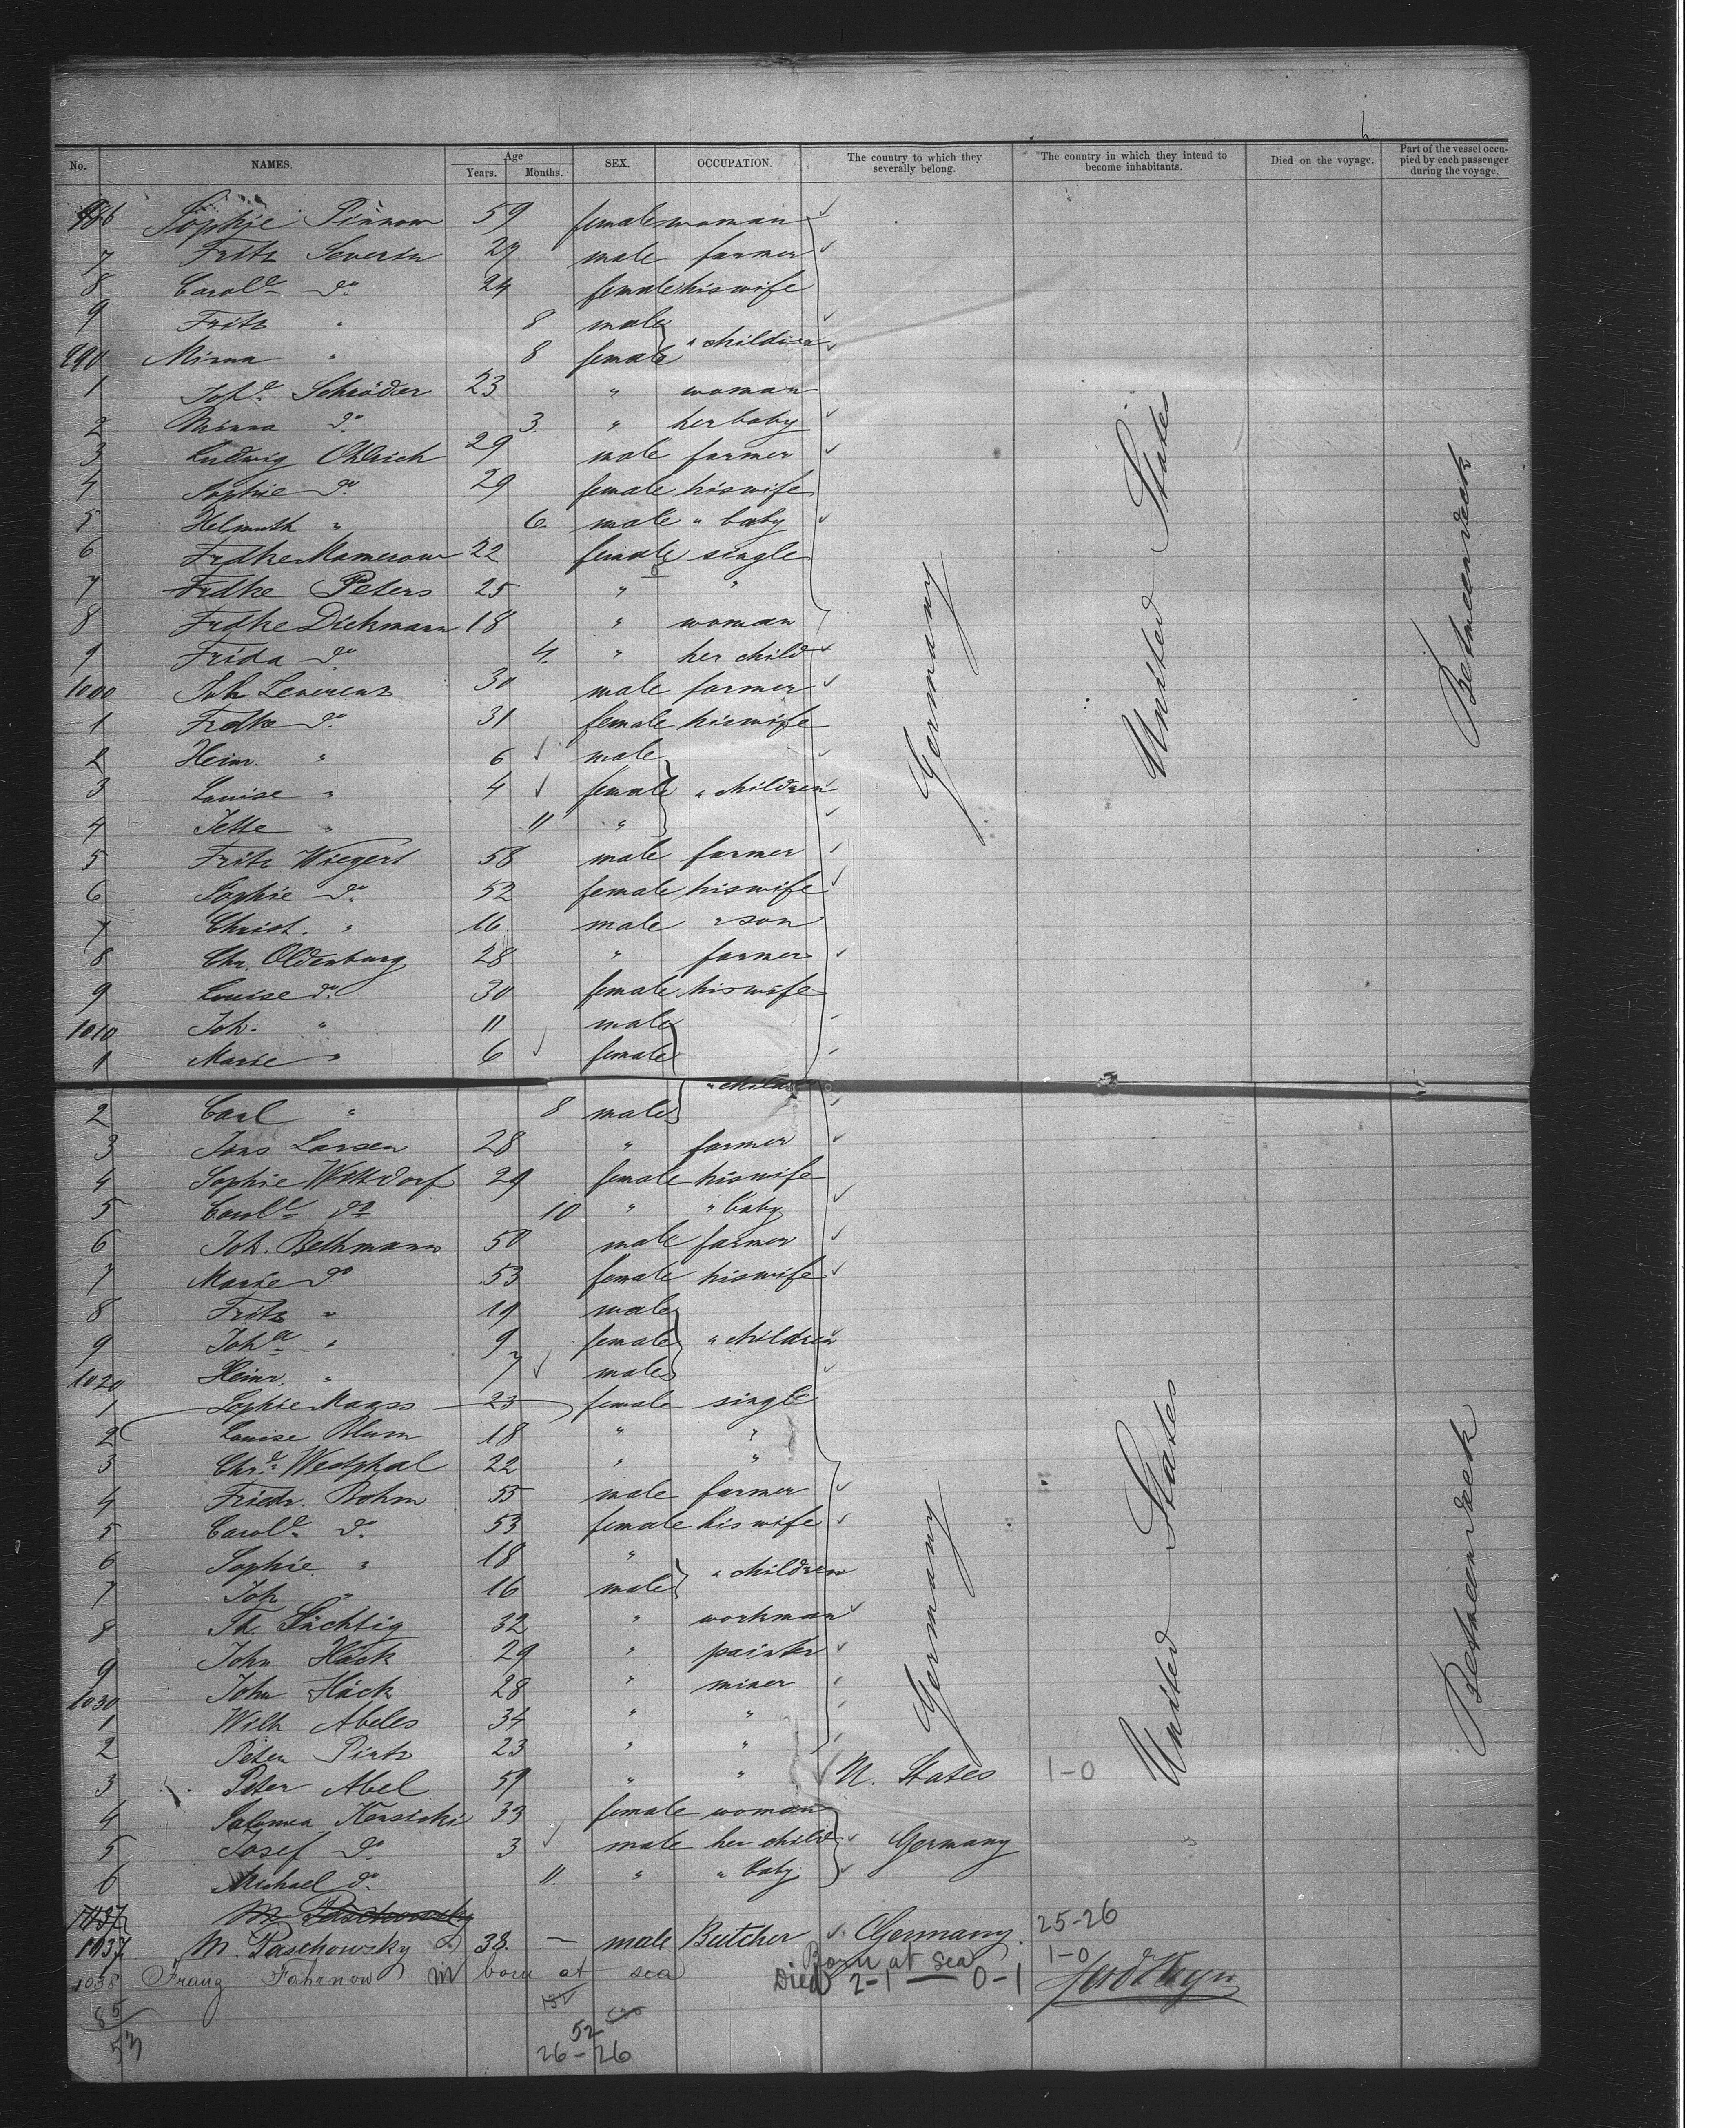 No. NAMES. Age Years. Months. SEX. OCCUPATION. The country to which they severally belong. The country in which they intend to become inhabitants. Died on the voyage. Part of the vessel occupied by each passenger during the voyage.
986 Sophie Pinnow 59 female woman
7 Fritz Severin 27 male farmer
8 Carole do 24 female his wife
9 Fritz " 8 male
990 Minna " 8 female " children
1 Johe Schröder 23 " woman
2 Minna do 3 " her baby
3 Ludwig Ohlrich 29 male farmer
4 Sophie do 29 female his wife
5 Helmuth " 6 male " baby
6 Frdke Kamerow 22 female single
7 Frdke Peters 25 " "
8 Frdke Dickmann 18 " woman
9 Frida do 4 " her child
1000 Joh. Leverenz 30 male farmer
1 Frdke do 31 female his wife
2 Heinr. " 6 male
3 Louise " 4 female " children
4 Jette " 11 "
5 Fritz Wiegert 58 male farmer
6 Sophie do 52 female his wife
7 Christ. " 16 male " son
8 Chr. Oldenburg 28 " farmer
9 Louise do 30 female his wife
1010 Joh. " 11 male
1 Marie " 6 female
Germany United States Between deck
" children
2 Carl " 8 male
3 Jons Larsen 28 " farmer
4 Sophie Wittdorf 29 female his wife
5 Carole do 10 " " baby
6 Joh. Bethmann 50 male farmer
7 Marie do 53 female his wife
8 Fritz " 19 male
9 Joha " 9 female " children
1020 Heinr. " 7 male
1 Sophie Maass 23 female single
2 Louise Blum 18 " "
3 Chre Westphal 22 " "
4 Friedr. Bohm 55 male farmer
5 Carole do 53 female his wife
6 Sophie " 18 "
7 Joh " 16 male " children
8 Th. Süchtig 32 " workman
9 John Häck 29 " painter
1030 John Häck 28 " miner
1 Wilh Abeles 34 " "
2 Peter Pintz 23 " "
Germany United States Between deck
3 Peter Abel 59 " " U. States 1-0
4 Salomea Kensicki 33 female woman
5 Josef do 3 male her child Germany
6 Michael do 11 " " baby
1037 M. Paschowsky
1037 M. Paschowsky 38 — male Butcher Germany. 25-26
1038 Franz Fahrnow m born at sea Born at sea 1-0
Died 2-1 — 0-1
85
53
52
26-26